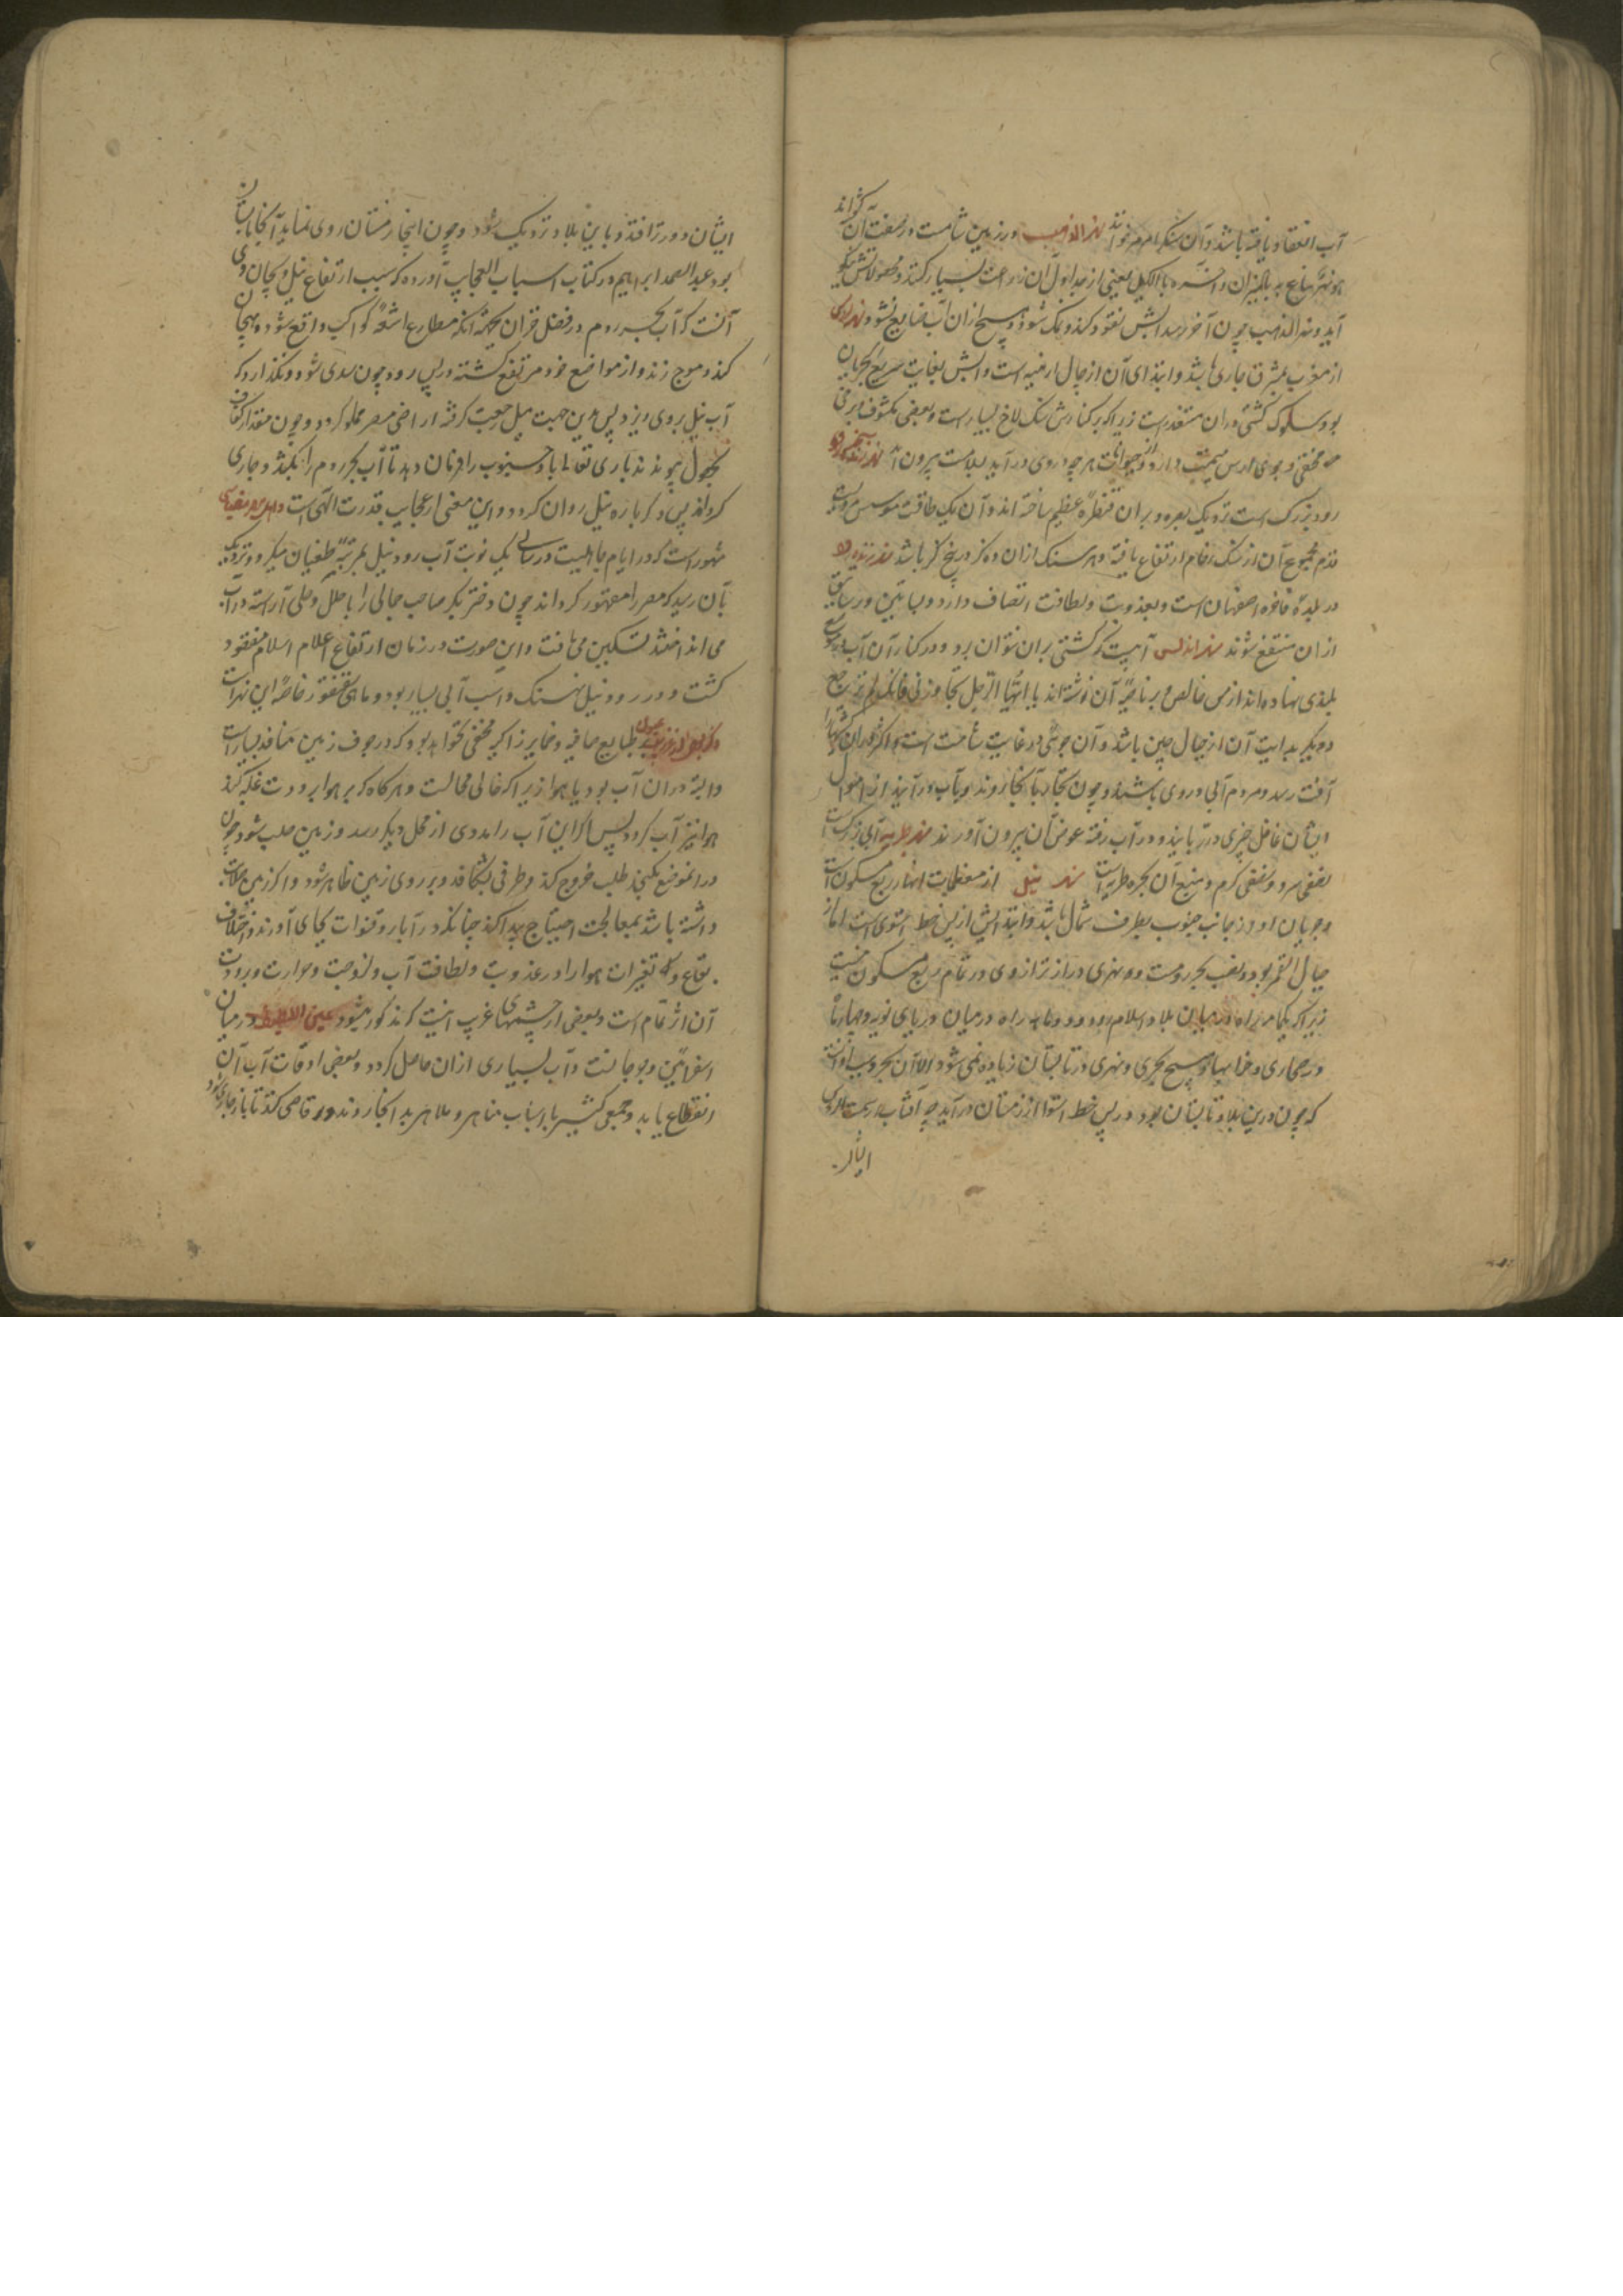 آب انعقاد یافته باشد و آن سنگ را مرمر خوانند نهر الذهب در زمین شامست در صفت آن گوید
هو نهر یباع به بالمیزان و آخره بالکیل یعنی از مبدا اول آن زراعت بسیار کنند و محصولاتش نیکو
آید و نهر الذهب چون آخر رسد آبش نفوذ کند و نمک شود و هیچ از آن آب ضایع نشود نهر ارس
از مغرب بمشرق جاری باشد و ابتدای آن از جبال ارمنیه است و آبش بغایت سریع الجریان
بود سلوک کشتی در آن متعذر است زیرا که بر کنارش سنگ لاخ بسیار است و بعضی مکشوف برخی
مخفی و جوی ارس میمنت دارد از حیوانات هر چه در وی در آید بسلامت بیرون آید
رود بزرگ است نزدیک بصره و بران قنطره عظیم ساخته اند و آن یک طاقست
قدم مجموع آن از سنگ رخام ارتفاع یافته و هر سنگ از آن ده گز در پنج گز باشد نهر زنده رود
در بلده فاخره اصفهان است و بعذوبت و لطافت اتصاف دارد و بساتین و رساتیق
از آن منتفع شوند نهر اندلس آبیست که کشتی بران نتوان برد و در کنار آن آب
بلندی نهاده اند از مس خالص و بر ناصیه آن نوشته اند یا ایها الرجل تجاوز نی فانک لم ترجع
دیگر بدایت آن از جبال چین باشد و آن جوی در غایت شأمت است و اکثر در آن کشتیها را
آفت رسد و مردم آبی در وی باشند و چون تجار بآنجا روند و بآب در آیند از اموال
ایشان غافل چیزی در ربایند و در آب رفته عوض آن بیرون آورند نهر طبریه آبی بزرگست
نصفی سرد و نصفی گرم و منبع آن بحیره طبریه است نهر نیل از معظمات انهار ربع مسکونست
و جریان او از جانب جنوب بطرف شمال باشد و ابتدایش از پس خط استوی است اما از
جبال القمر بود و مصب بحر رومست و نهری دراز تر از وی در تمام ربع مسکون نیست
زیرا که یکماهه راه در میان بلاد اسلام بود و دو ماهه راه در میان دریای نوبه و چهار ماه
در صحاری و خرابها و هیچ بحری و نهری در تابستان زیاده نمی شود الا آن بحر و سبب او آنست
که چون درین بلاد تابستان بود در پس خط استوا از زمستان در آید چه آفتاب
ایشان
ایشان دور تر افتد و باین بلاد نزدیک شود و چون اینجا زمستان روی نماید آنجا تابستان
بود عبدالصمد ابراهیم در کتاب اسباب العجایب آورده که سبب ارتفاع نیل و هیجان وی
آنست که آب بحر روم در فصل خزان بجهة آنکه مطارح اشعه کواکب واقع شود و هیجان
کند و موج زند و از مواضع خود مرتفع گشته در پس رود چون سدی شود و نگذارد که
آب نیل بروی ریزد پس بدین جهت نیل رجعت کرفته اراضی مصر مملو کردد و چون مقدار کفاف
بحصول پیوندد باری تعالی باد جنوب را فرمان دهد تا آب بحر روم را بکند و جاری
کرداند پس دکرباره نیل روان کردد و این معنی از عجایب قدرت الهی است
مشهور است که در ایام جاهلیت در سالی یک نوبت آب رود نیل بمرتبه طغیان میکرد و نزدیک
بآن رسید که مصر را مقهور کرداند چون دختر بکر صاحب جمالی را با حلل و حلی آراسته در آب
می انداختند تسکین می یافت و این صورت در زمان ارتفاع اعلام اسلام مفقود
کشت و در رود نیل نهنگ و اسب آبی بسیار بود و ماهی سقنقور خاصه این نهر است
ذکر عیون طبایع صافیه و ضمایر زاکیه مخفی نخواهد بود که در جوف زمین منافذ بسیار است
و البته در آن آب بود یا هوا زیرا که خالی محالست و هر کاه که بر هوا برودت غلبه کند
هوا نیز آب کردد پس اکر این آب را مددی از محل دیگر رسد و زمین صلب شود چون
در آن موضع نکنجد طلب خروج کند و طرفی بشکافد و بر روی زمین ظاهر شود و اکر زمین صلابت
داشته باشد بمعالجت احتیاج پیدا کند چنانکه در آبار و قنوات بجای آورند و اختلاف
بقاع و تغیرات هوا را در عذوبت و لطافت آب و لزوجت و حرارت و برودت
آن اثر تمام است و بعضی از چشمهای غریب اینست که مذکور میشود عین در میان
اسفراین و جرجانست و آب بسیاری از آن حاصل کردد و بعضی اوقات آب آن
انقطاع یابد و جمعی کثیر با اسباب مناهی و ملاهی بدانجا روند و رقاصی کنند تا باز جاری شود